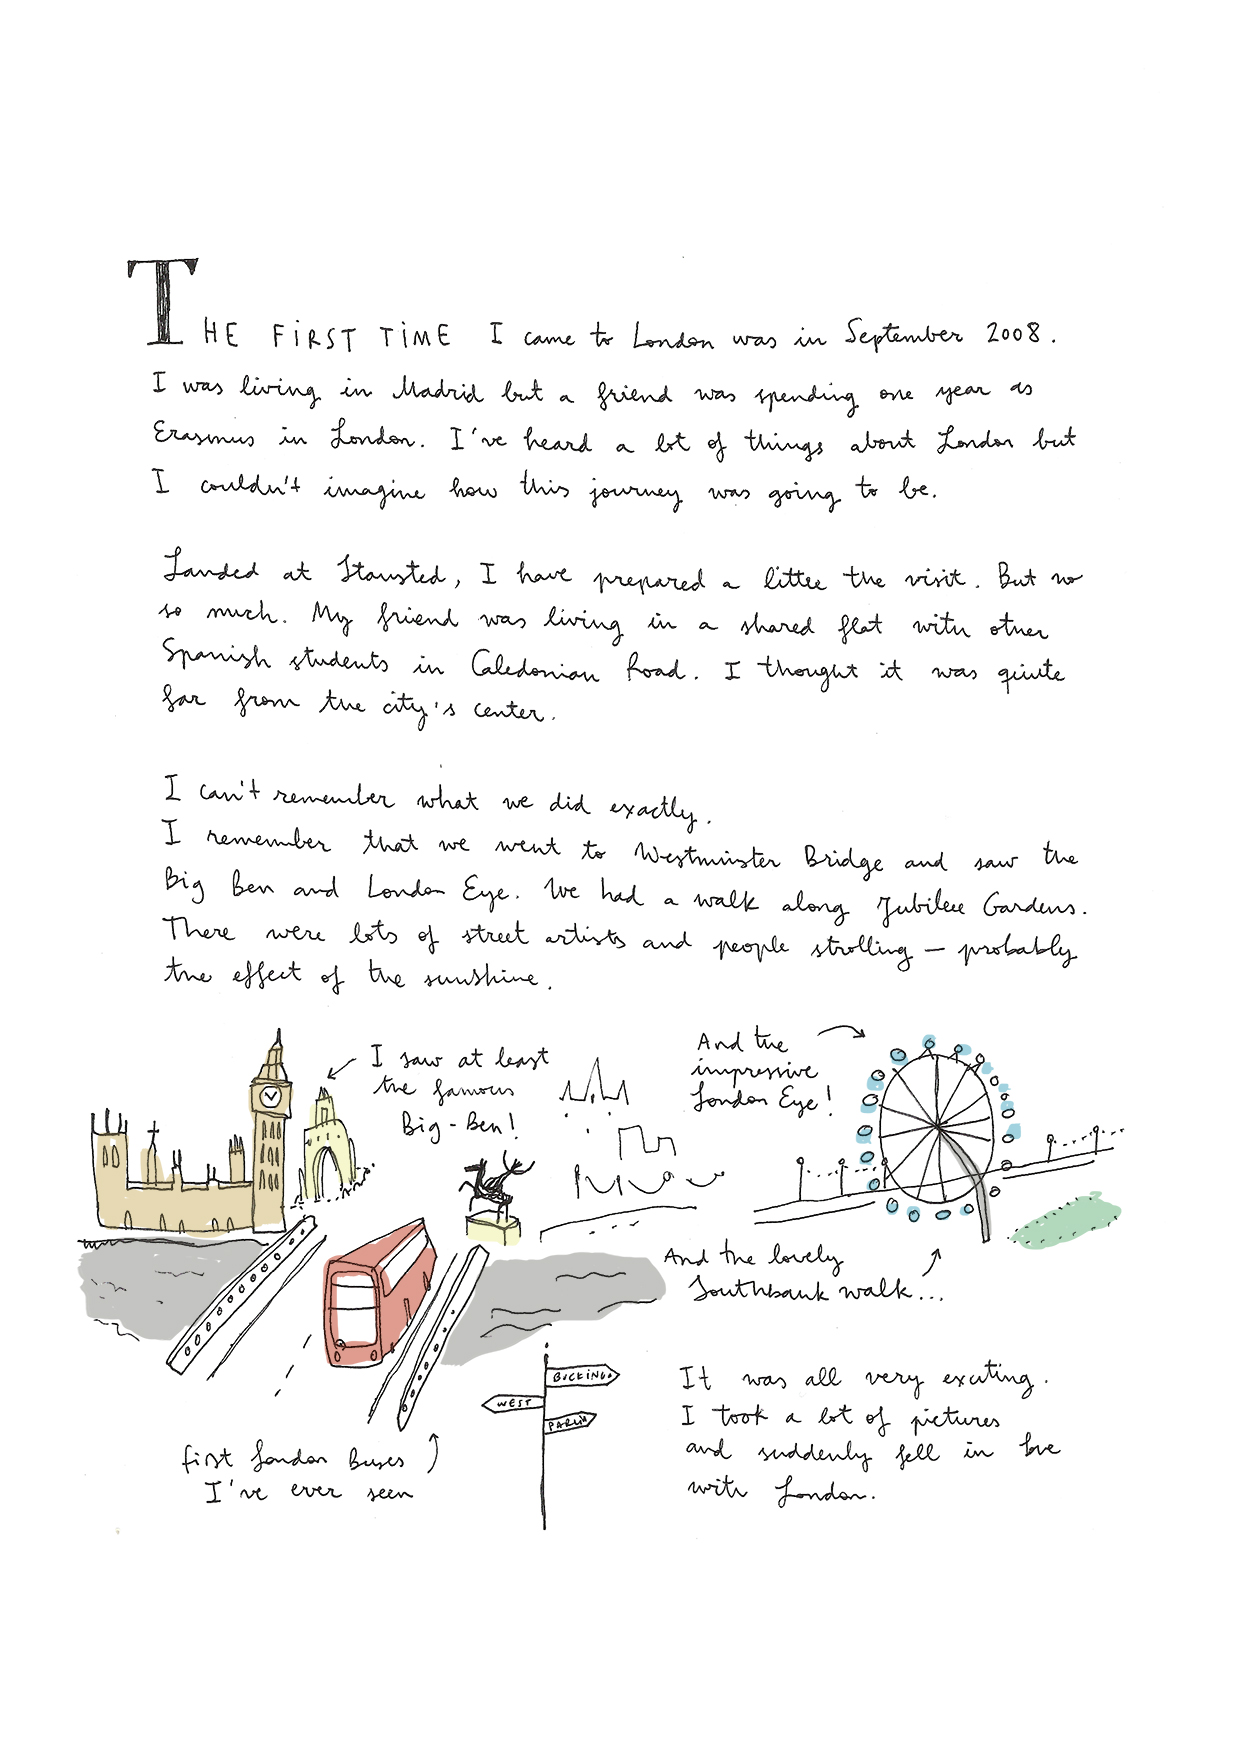 THE FIRST TIME I came to London was in September 2008.
I was living in Madrid but a friend was spending one year as
Erasmus in London. I've heard a lot of things about London but
I couldn't imagine how this journey was going to be.
Landed at Stansted, I have prepared a little the visit. But no
so much. My friend was living in a shared flat with other
Spanish students in Caledonian Road. I thought it was quite
far from the city's center.
I can't remember what we did exactly.
I remember that we went to Westminster Bridge and saw the
Big Ben and London Eye. We had a walk along Jubilee Gardens.
There were lots of street artists and people strolling – probably
the effect of the sunshine.
I saw at least
the famous
Big-Ben!
And the
impressive
London Eye!
And the lovely
Southbank walk...
BUCKINGA
WEST
PARLIA
It was all very exciting.
I took a lot of pictures
and suddenly fell in love
with London.
first London Buses
I've ever seen